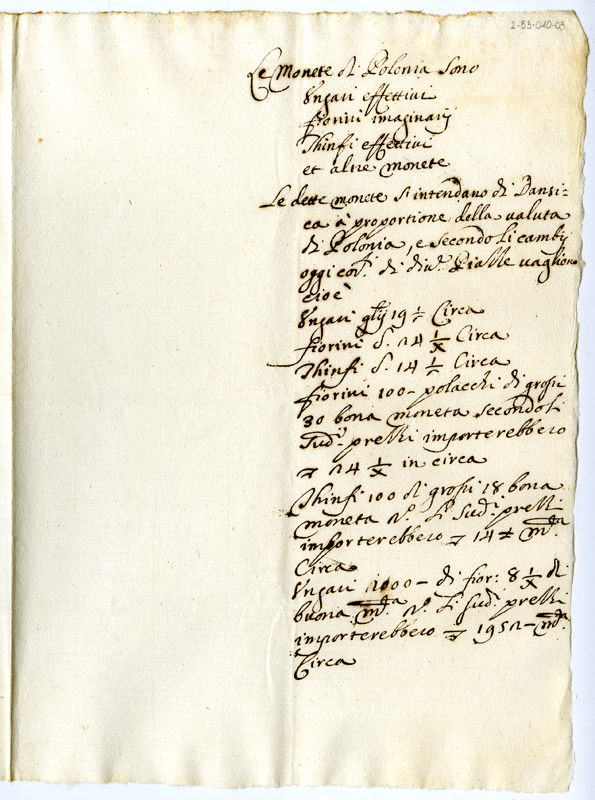 2-53-040-03
Le Monete di Polonia Sono
Ungari effettivi
fiorini imaginarij
Thinfi effettivi
et altre monete
Le dette monete s'intendano di Dansi=
ca à proportione della valuta
di Polonia, e secondo li cambij
oggi di Piazze vagliono
cioè
Ungari 19 Circa
fiorini 24 1/x Circa
Thinfi 14 Circa
fiorini 100 - polacchi di grossi
30 bona moneta secondo li
Sud.i prezzi importerebbero
24 1/x in circa
Thinfi 100 di grossi 18 bona
moneta Li Sud.i prezzi
importerebbero 14 m.da
Circa
Ungari 1000 - di fior: 8 1/x di
buona m.da Li Sud.i prezzi
importerebbero 1952 - m.da
Circa